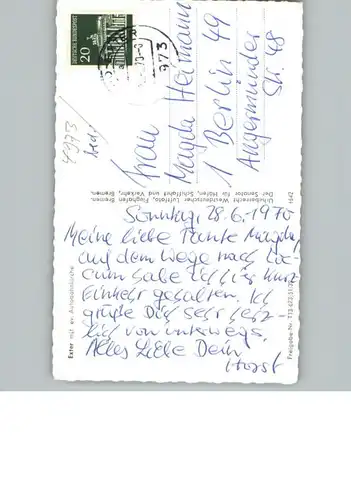 DEUTSCHE BUNDESPOST
20
973
4973
Frau
Magda Heimann
1 Berlin 49
Angermünder
Str. 48
Luftbildarchiv Flughafen Bremen.
Der Senator für Häfen, Schiffahrt und Verkehr, Bremen.
1642
Sonntag, 28.6.1970
Meine liebe Tante Magda,
auf dem Wege nach
habe ich hier kurz
Einkehr gehalten. Ich
grüße Dich sehr herz-
lich von unterwegs.
Alles Liebe Dein
Horst
Exter mit ev. Autobahnkirche
Freigabe-Nr.